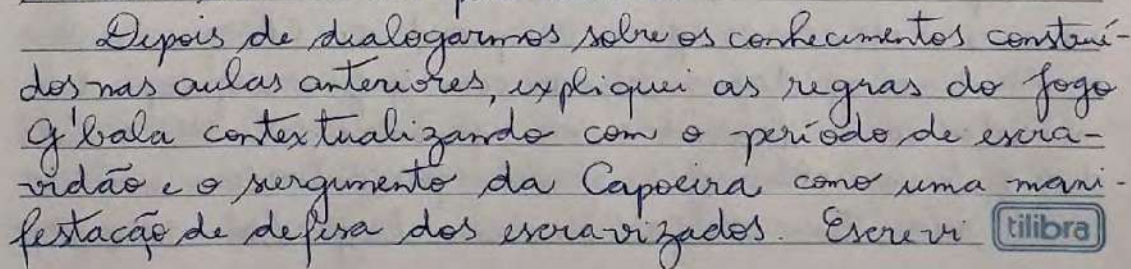 Depois de dialogarmos sobre os conhecimentos construí-
dos nas aulas anteriores, expliquei as regras do jogo
g'bala contextualizando com o período de escra-
vidão e o surgimento da Capoeira como uma mani-
festação de defesa dos escravizados. Escrevi tilibra